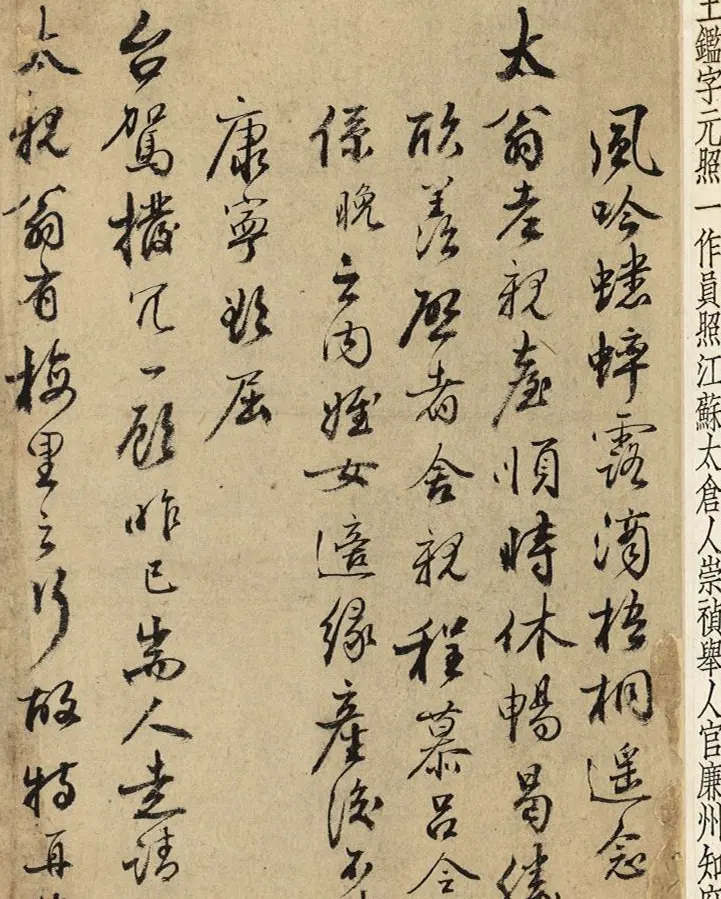 王鑑字元照一作員照江蘇太倉人崇禎舉人官廉州知府
風吟蟋蟀露滴梧桐遥念
太翁老親臺順時休暢曷勝
欣羨啟者舍親程慕吕令
係晚之内姪女適緣產後不
康寧欲屈
台駕撥冗一顧昨已耑人走請
太親翁有梅里之行故特再